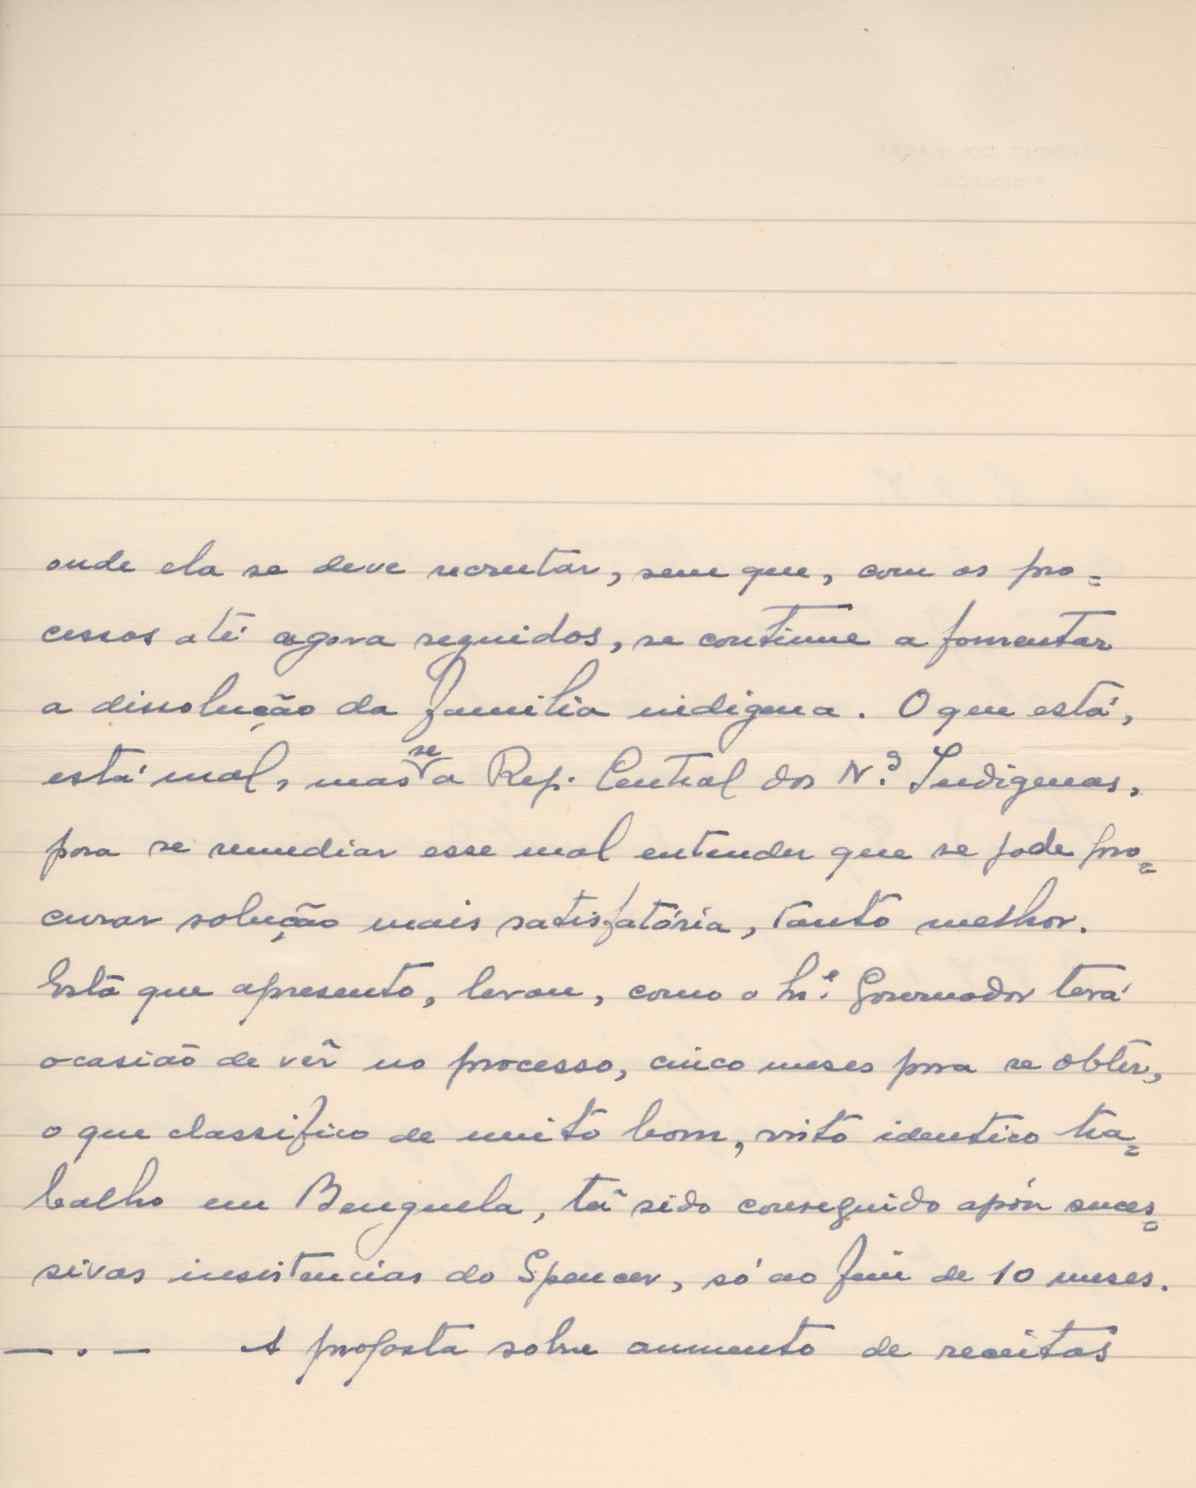 onde ela se deve recrutar, sem que, com os pro=
cessos até agora seguidos, se continue a fomentar
a dissolução da familia indigena. O que está,
está mal, mas se a Rep. Central dos N.os Indigenas,
para se remediar esse mal entender que se pode pro=
curar solução mais satisfatória, tanto melhor.
Esta que apresento, levou, como o Sr. Governador terá
ocasião de vêr no processo, cinco meses para se obter,
o que classifico de muito bom, visto identico tra=
balho em Benguela, ter sido conseguido após suces=
sivas insistencias do Spencer, só ao fim de 10 meses.
— . — A proposta sobre aumento de receitas